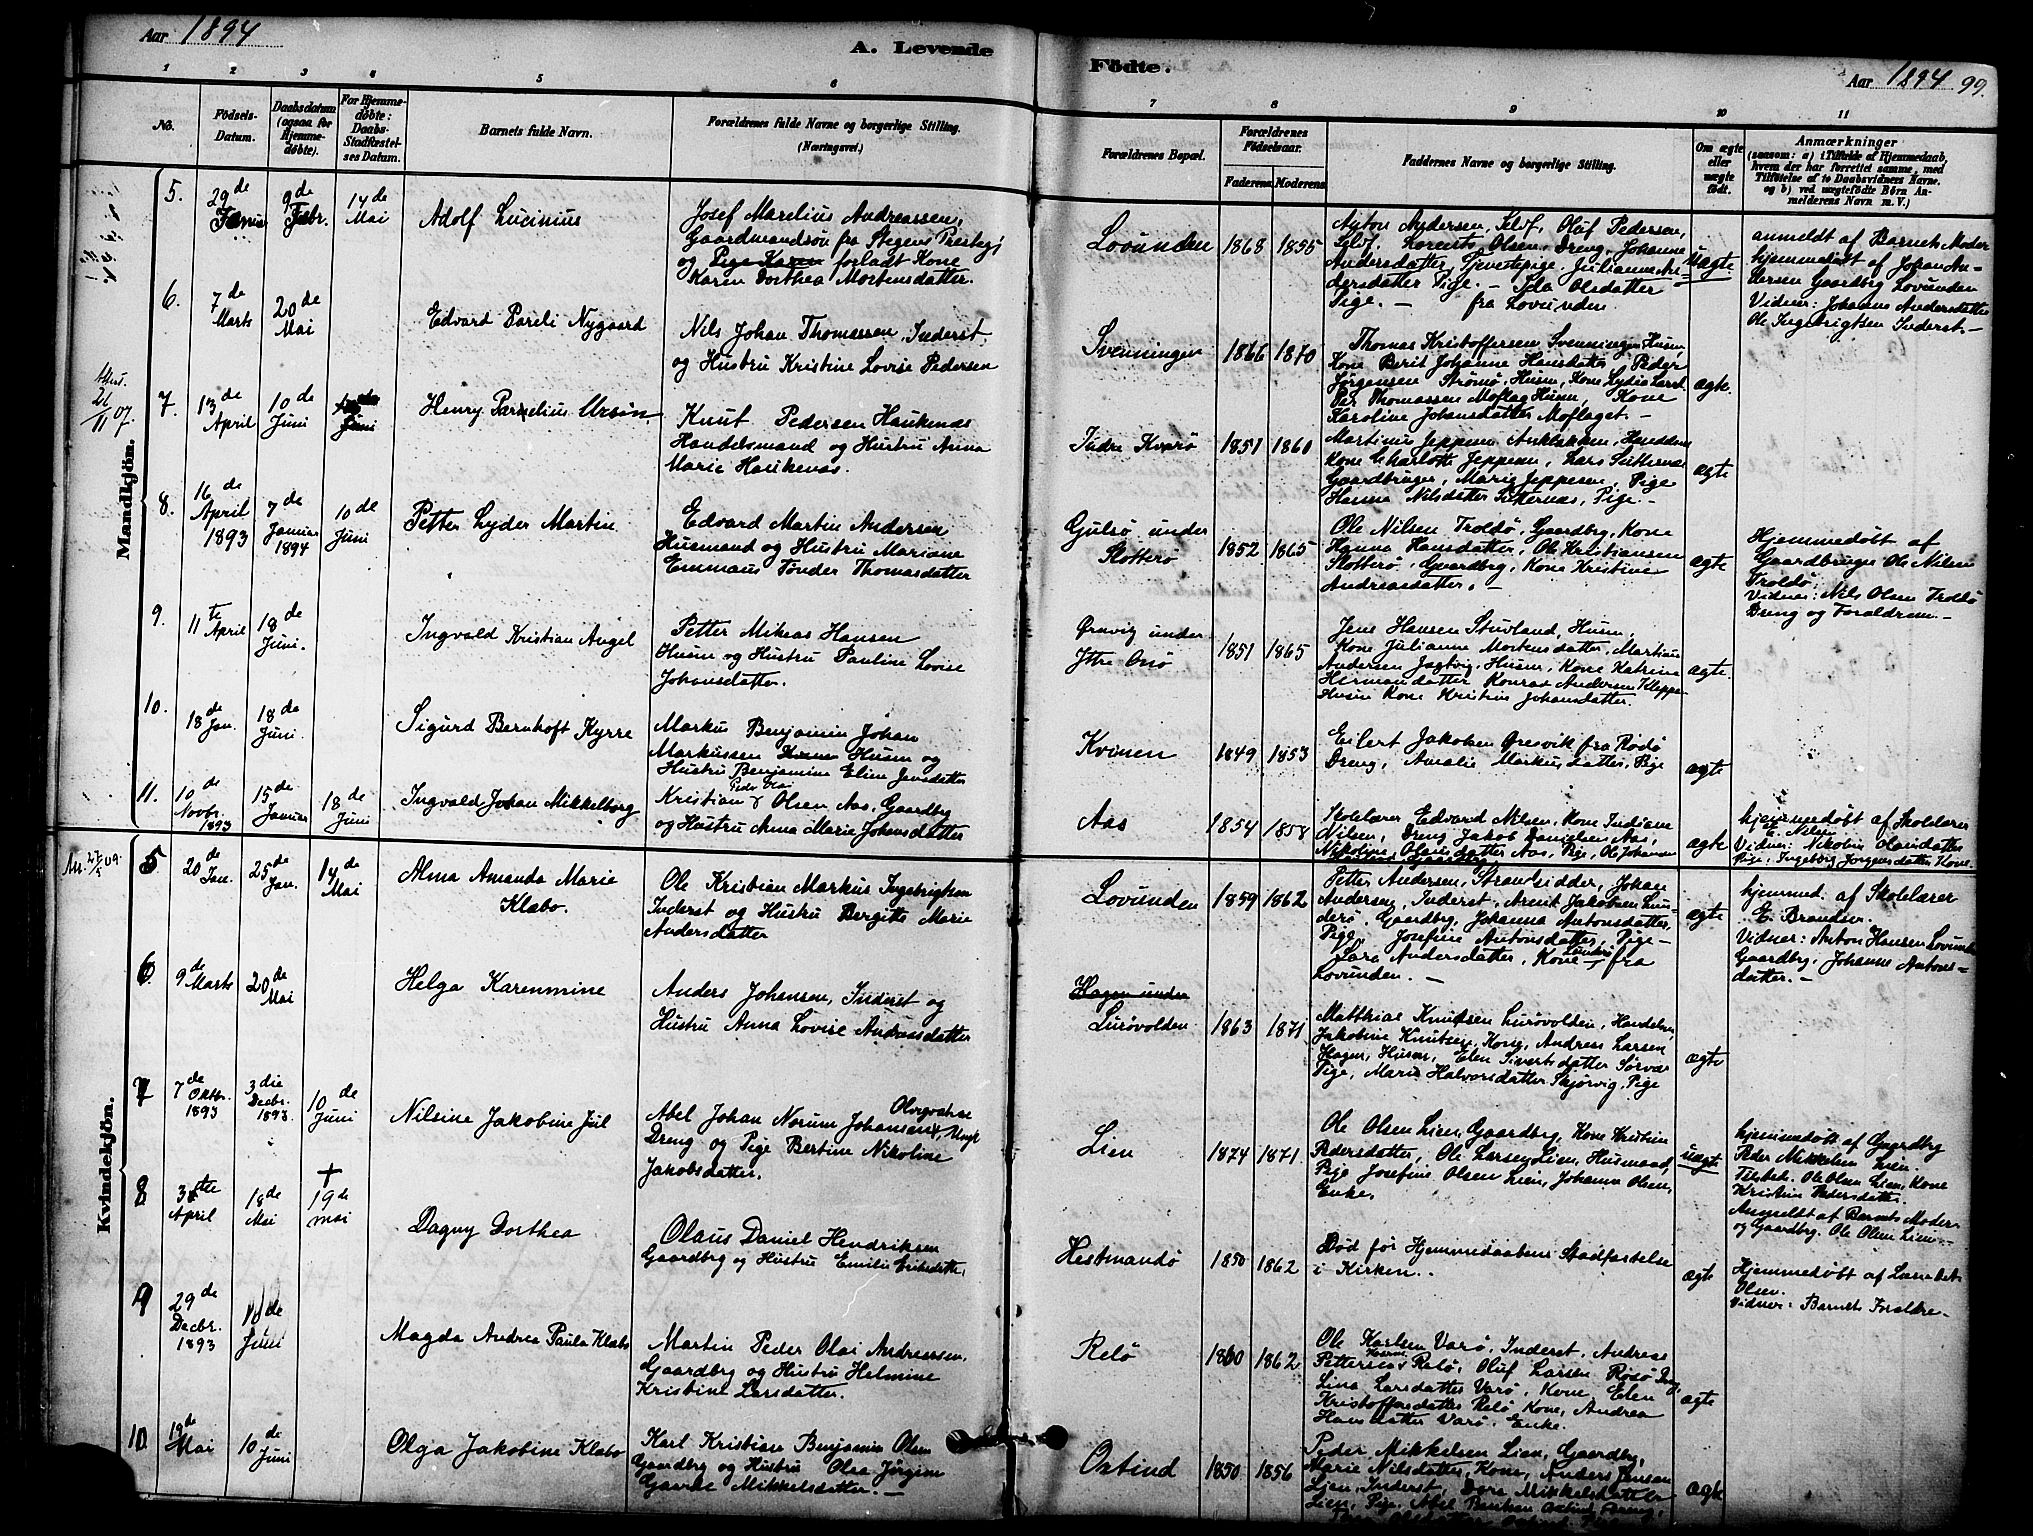 Aar 1894
A. Levende
Födte.
Aar 1894
99.
1 2 3 4 5 6 7 8 9 10 11
No.
Födsels-
Datum.
Daabsdatum
(ogsaa for
Hjemme-
døbte).
For Hjemme-
døbte:
Daabs-
Stadfæstel-
ses Datum.
Barnets fulde Navn.
Forældrenes fulde Navne og borgerlige Stilling.
(Næringsvei.)
Forældrenes Bopæl.
Forældrenes
Födselsaar.
Faderens. Moderens.
Faddernes Navne og borgerlige Stilling.
Om ægte
eller
uægte
født.
Anmærkninger
(saasom: a) i Tilfælde af Hjemmedaab,
hvem der har forrettet samme, med
Tilföielse af to Daabsvidners Navne.
og b) ved uægtefödte Börn An-
melderens Navn m. V.)
Mandkjön.
5. 29de 9de Febr. 14de Mai
Adolf Lucinius
Josef Marelius Andreassen,
Gaardmandsøn fra Stegens Prestegj
og Pige Karen forladt Kone
Karen Dorthea Mortensdatter.
Lovunden 1868 1855
Anton Andersen, Selvf, Oluf Pedersen,
Selvf. Lorents Olsen, Dreng, Johanne
Andersdatter, Tjenestepige. Julianne An-
dersdatter Pige. — Ida Olsdatter
Pige. — fra Lovunden.
uægte
anmeldt af Barnets Moder
hjemmedøbt af Johan An-
dersen Gaardbrg Lovunden
Vidner: Johanne Andersdatter
Ole Ingebrigtsen Inderst. —
6. 7de Marts 20de Mai
Edvard Pareli Nygaard
Nils Johan Thomassen, Inderst
og Hustru Kristine Lovise Pedersen
Svenningen 1866 1870
Thomas Kristoffersen Svenningen Husm,
Kone Berit Johanne Hansdatter, Peder
Jørgensen Strømø, Husm, Kone Lydia Larsd.
Per Thomassen Moflag Husm, Kone
Karoline Johansdatter Moflaget. —
ægte.
Attest.
21/11 07.
7. 13de April 10de Juni Juni
Henry Parelius Ursin
Knut Pedersen Haukenæs
Handelsmand og Hustru Anna
Marie Haukenæs.
Indre Kvarø 1851 1860
Martinus Jeppesen
Kone Charlotte Jeppesen, Lars Sætternæs
Gaardbruger, Marie Jeppesen, Pige
Hanna Nilsdatter Sætternæs, Pige. —
ægte
8. 16de April 1893 7de Januar 1894 10de Juni
Petter Lyder Martin
Edvard Martin Andersen
Husmand og Hustru Mariane
Emmaus Tønder Thomasdatter
Gulsø under
Slotterø 1852 1865
Ole Nilsen Troldø, Gaardbg, Kone
Hanna Hansdatter, Ole Kristiansen
Slotterø, Gaardbg, Kone Kristine
Andreasdatter. —
ægte
Hjemmedøbt af
Gaardbruger Ole Nilsen
Troldø.
Vidner: Nils Olsen Troldø
Dreng og Forældrene. —
9. 11te April 18de Juni.
Ingvald Kristian Angel
Petter Mikas Hansen
Husm og Hustru Pauline Lovise
Johansdatter.
Ørnvig under
Ytre Onø 1851 1865
Jens Hansen Stuvland, Husm,
Kone Julianne Mortensdatter, Martin
Andersen Jagtvig, Husm, Kone Katrine
Hermansdatter Konrad Andersen Kleppe
Husm Kone Kristine Johansdatter.
ægte.
10. 18de Jan. 18de Juni.
Sigurd Bernhoft Kyrre
Markus Benjamin Johan
Markussen Husm og
Hustru Benjamine Elen Jensdatter
Kvinen 1849 1853
Eilert Jakobsen Øresvik fra Rødø
Dreng, Amalie Markusdatter, Pige
ægte
11. 10de Novbr. 1893 15de Januar 18de Juni
Ingvald Johan Mikkelborg
Kristian Peder Olai Olsen Aas, Gaardbg
og Hustru Anna Marie Johansdatter
Aas 1854 1858
Skolelærer Edvard Nilsen, Kone Indiane
Nilsen, Dreng Jakob Danielsen Aas,
Nikoline Olausdatter Aas, Pige, Ole Johansen
ægte
hjemmedøbt af Skolelærer
E. Nilsen
Vidner: Nikoline Olausdatter
Pige, Ingeborg Jørgensdatter Kone.
Kvindekjön.
5 20de Jan. 25de Jan. 14de Mai
Alma Amanda Marie
Klæbo.
Ole Kristian Markus Ingebrigtsen
Inderst og Hustru Bergitte Marie
Andersdatter
Lovunden 1859 1862
Petter Andersen, Strandsidder, Johan
Andersen, Inderst, Arent Jakobsen Lun-
derø Gaardbg, Johanna Antonsdatter,
Pige, Josefine Antonsdatter, Pige —
Sara Andersdatter, Kone, fra
Lovunden. —
ægte
hjemmed. af Skolelærer
E. Brandser.
Vidner: Anton Hansen Lovunden
Gaardbg, Johanne Antons-
datter. —
6 9de Marts 20de Mai
Helga Karenmine
Anders Johansen, Inderst og
Hustru Anna Lovise Andreasdatter
Hagen under
Lurøvolden 1863 1871
Matthias Knutsen Lurøvolden, Handelsm,
Jakobine Knutsen, Kone, Andreas Larsen
Hagen, Husm, Elen Sivertsdatter Sørvær
Pige, Marie Halvorsdatter Skjørvig, Pige
ægte
7 7de Oktbr. 1893 3die Decbr. 1893. 10de Juni
Nilsine Jakobine Juil
Abel Johan Norum Johansen,
Dreng og Pige Bertine Nikoline
Jakobsdatter.
Lien 1874 1871
Ole Olsen Lien, Gaardbg, Kone Kristine
Pedersdatter, Ole Larsen Lien, Husmand,
Pige Josefine Olsen Lien, Johanna Olsen,
Enke,
uægte
hjemmedøbt af Gaardbg
Peder Mikkelsen Lien.
Tilstede. Ole Olsen Lien, Kone
Kristine Pedersdatter
Anmeldt af Barnets Moder
og Gaardbg. Ole Olsen Lien. —
8 April 18de Mai + 19de mai
Dagny Dorthea
Olaus Daniel Hendriksen
Gaardbrg og Hustru Emilie Eriksdatter,
Hestmandø 1850 1862
Død før Hjemmedaabens Stadfæstelse
i Kirken.
ægte
Hjemmedøbt af
Olsen.
Vidner: Barnets Forældre —
9 29de Decbr. 1893 Juni
Magda Andrea Paula Klæbo
Martin Peder Olai Andreassen,
Gaardbrg og Hustru Helmine
Kristine Larsdatter.
Relø 1860 1862
Ole Karlsen Varø, Inderst, Andreas
Petternas Relø, Oluf Larsen Rosø
Lina Larsdatter Varø, Kone, Elen
Kristoffersdatter Relø Kone, Andrea
Hansdatter Varø. Enke.
ægte
10 19de Mai 10de Juni
Olga Jakobine Klæbo
Karl Kristian Benjamin Olsen
Gaardbrg og Hustru Olea Jørgine
Gaarde Mikkelsdatter. —
Oxtind 1850 1856
Peder Mikkelsen Lien, Gaardbg,
Marie Nilsdatter, Kone, Anders Jensen
Lien, Inderst, Dora Mikkelsdatter
Lien, Pige, Abel
ægte